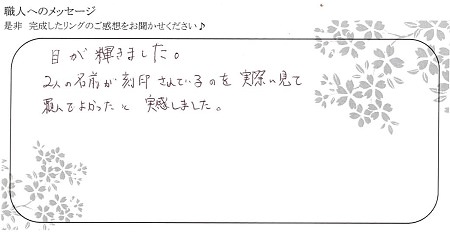 職人へのメッセージ
是非 完成したリングのご感想をお聞かせください♪
目が輝きました。
2人の名前が刻印されているのを実際に見て
頼んでよかったと実感しました。